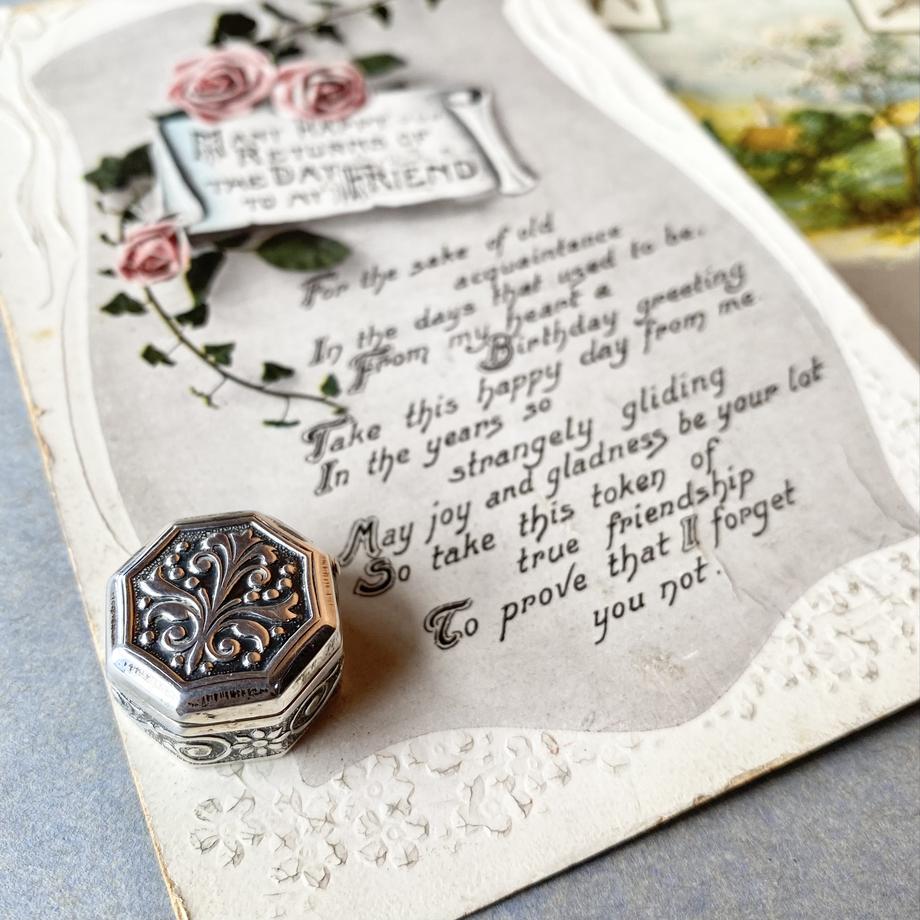 MANY HAPPY
RETURNS OF
THE DAY
TO MY FRIEND
For the sake of old
acquaintance
In the days that used to be.
From my heart a
Birthday greeting
Take this happy day from me.
In the years so
strangely gliding
May joy and gladness be your lot
So take this token of
true friendship
To prove that I forget
you not.